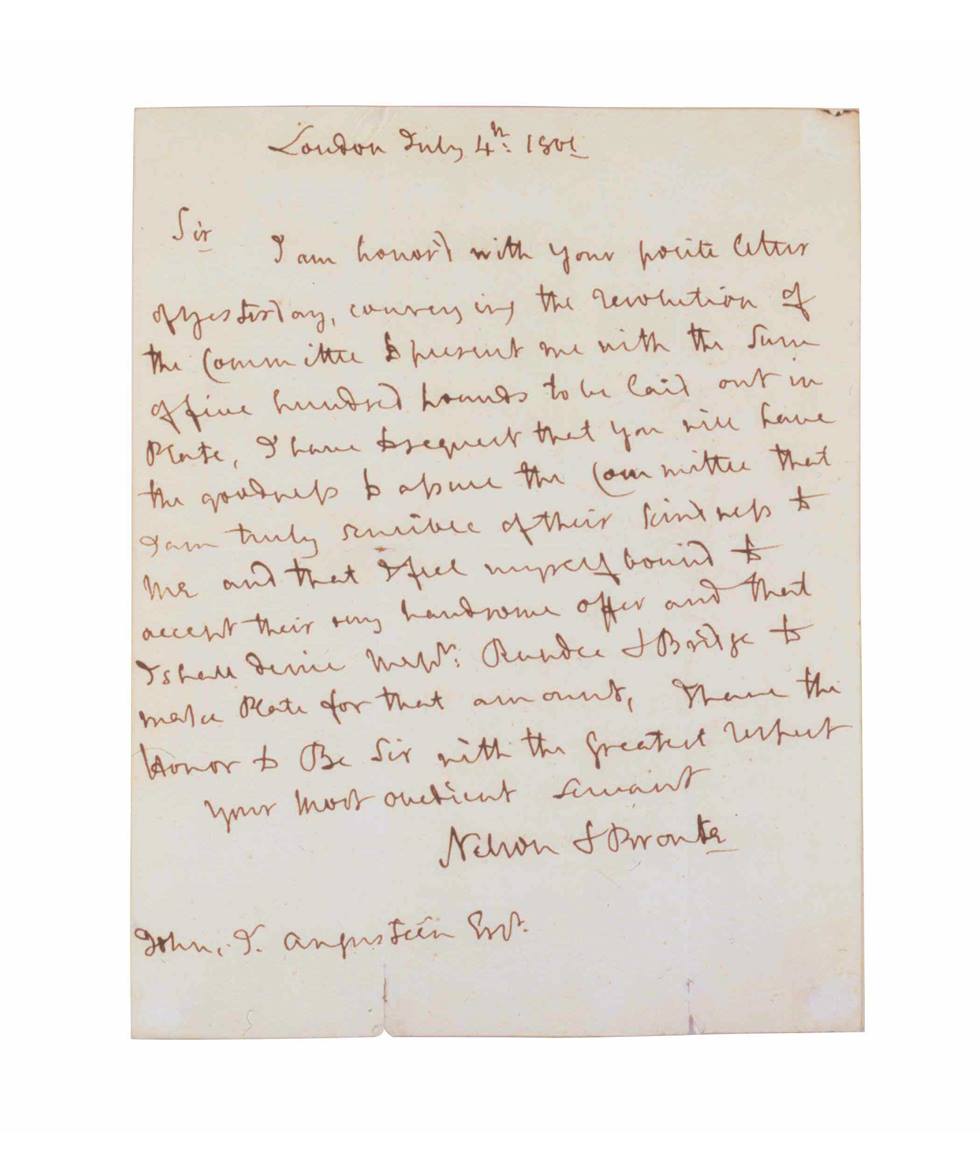 London July 4th: 1801
Sir
I am honor'd with your polite letter
of yesterday, conveying the resolution of
the Committee to present me with the Sum
of five hundred pounds to be laid out in
Plate, I have to request that you will have
the goodness to assure the Committee that
I am truly sensible of their kindness to
me and that I feel myself bound to
accept their very handsome offer and that
I shall desire Messrs: Rundle & Bridge to
make Plate for that amount, I have the
Honor to Be Sir with the greatest respect
your most obedient servant
Nelson & Bronte
John, J. Angerstein Esqr.